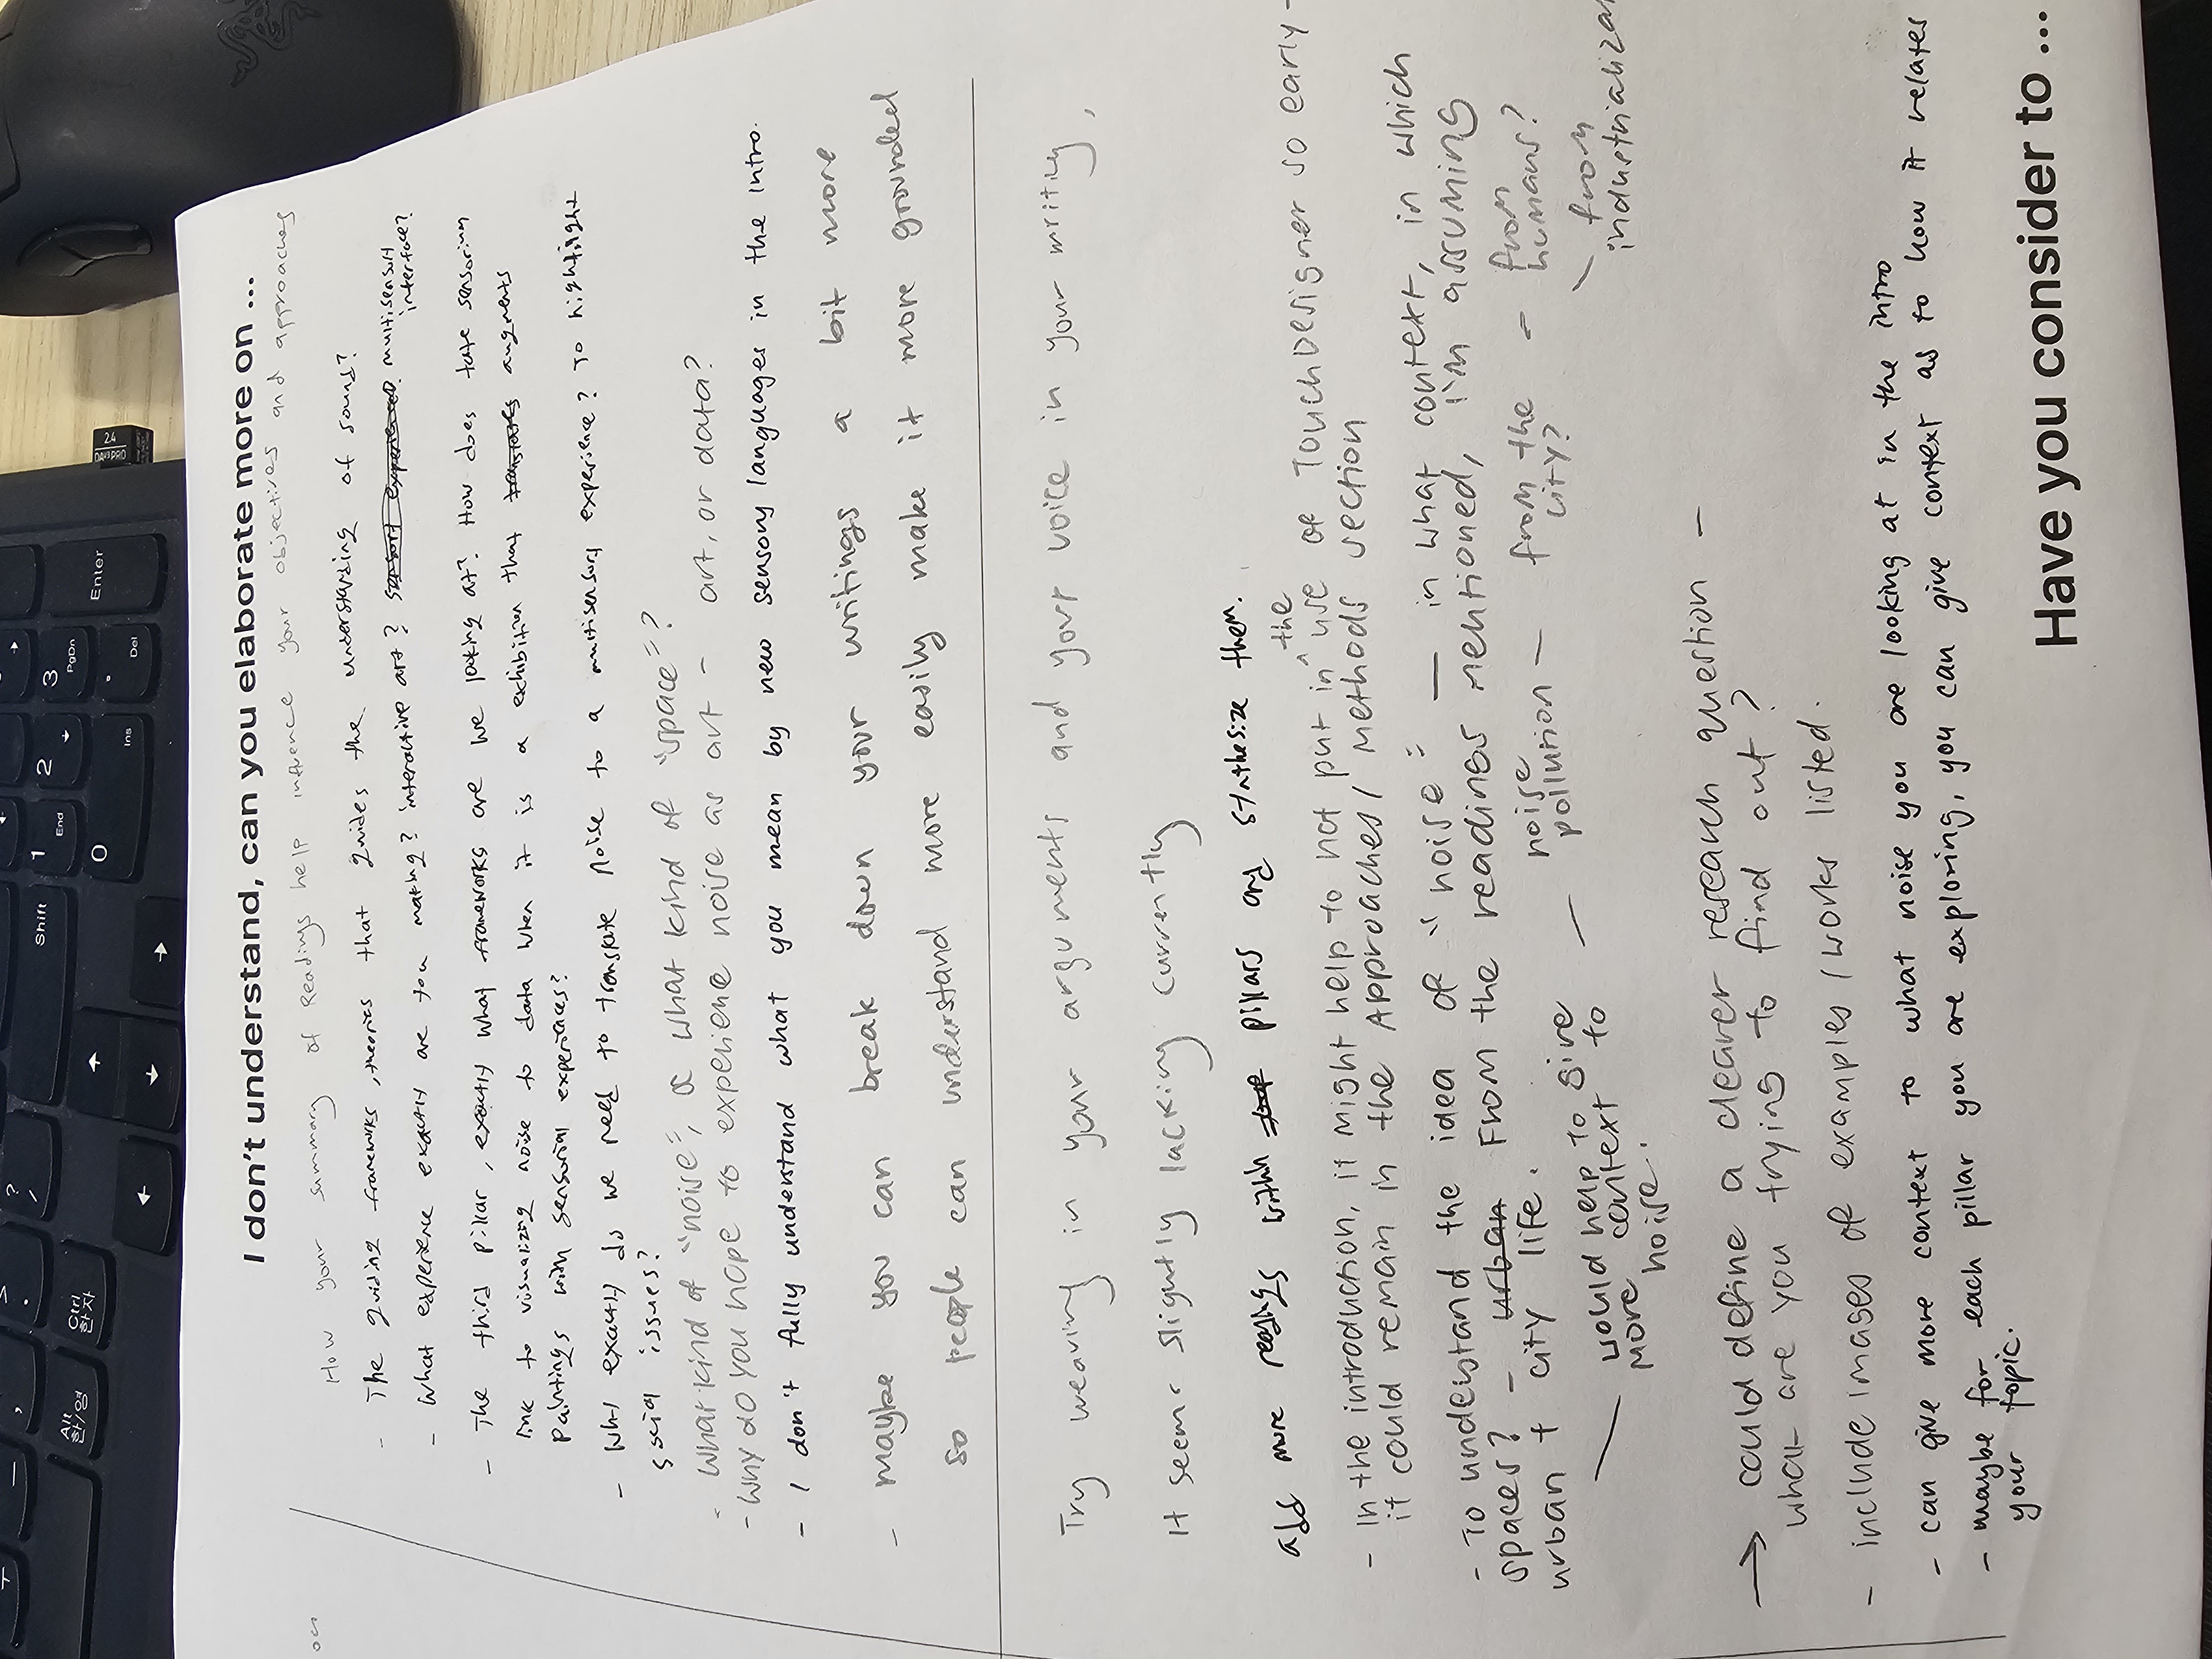 I don't understand, can you elaborate more on ...
How your summary of Readings help influence your objectives and approaches
- The guiding frameworks, theories that guides the understanding of sound?
- What experience exactly are you making? interactive art? multisensory
interface?
- The third pillar, exactly what frameworks are we looking at? How does
link to visualizing noise to data when it is a exhibition that augments
paintings with sensorial experiences?
- Why exactly do we need to translate noise to a multisensory experience? To highlight
social issues?
- What kind of "noise", & what kind of "space"?
- Why do you hope to experience noise as art - art, or data?
- I don't fully understand what you mean by new sensory languages in the intro.
- maybe you can break down your writings a bit more
so people can understand more easily make it more grounded
Try weaving in your arguments and your voice in your writing,
It seems slightly lacking currently
add more readings within pillars and synthesize them.
- In the introduction, it might help to not put in the use of TouchDesigner so early -
it could remain in the Approaches/Methods section
- To understand the idea of "noise" — in what context, in which
spaces? - urban From the readings mentioned, i'm assuming
urban + city life. — noise pollution — from the city? - from humans?
- from
— would help to give
more context to
noise.
→ could define a clearer research question -
what are you trying to find out?
- include images of examples / works listed.
- can give more context to what noise you are looking at in the intro
- maybe for each pillar you are exploring, you can give context as to how it relates
your topic.
Have you consider to ...
Enter
Shift
PgDn
3
2
1
End
0
Ins
Del
Ctrl
한자
Alt
한/영
2.4